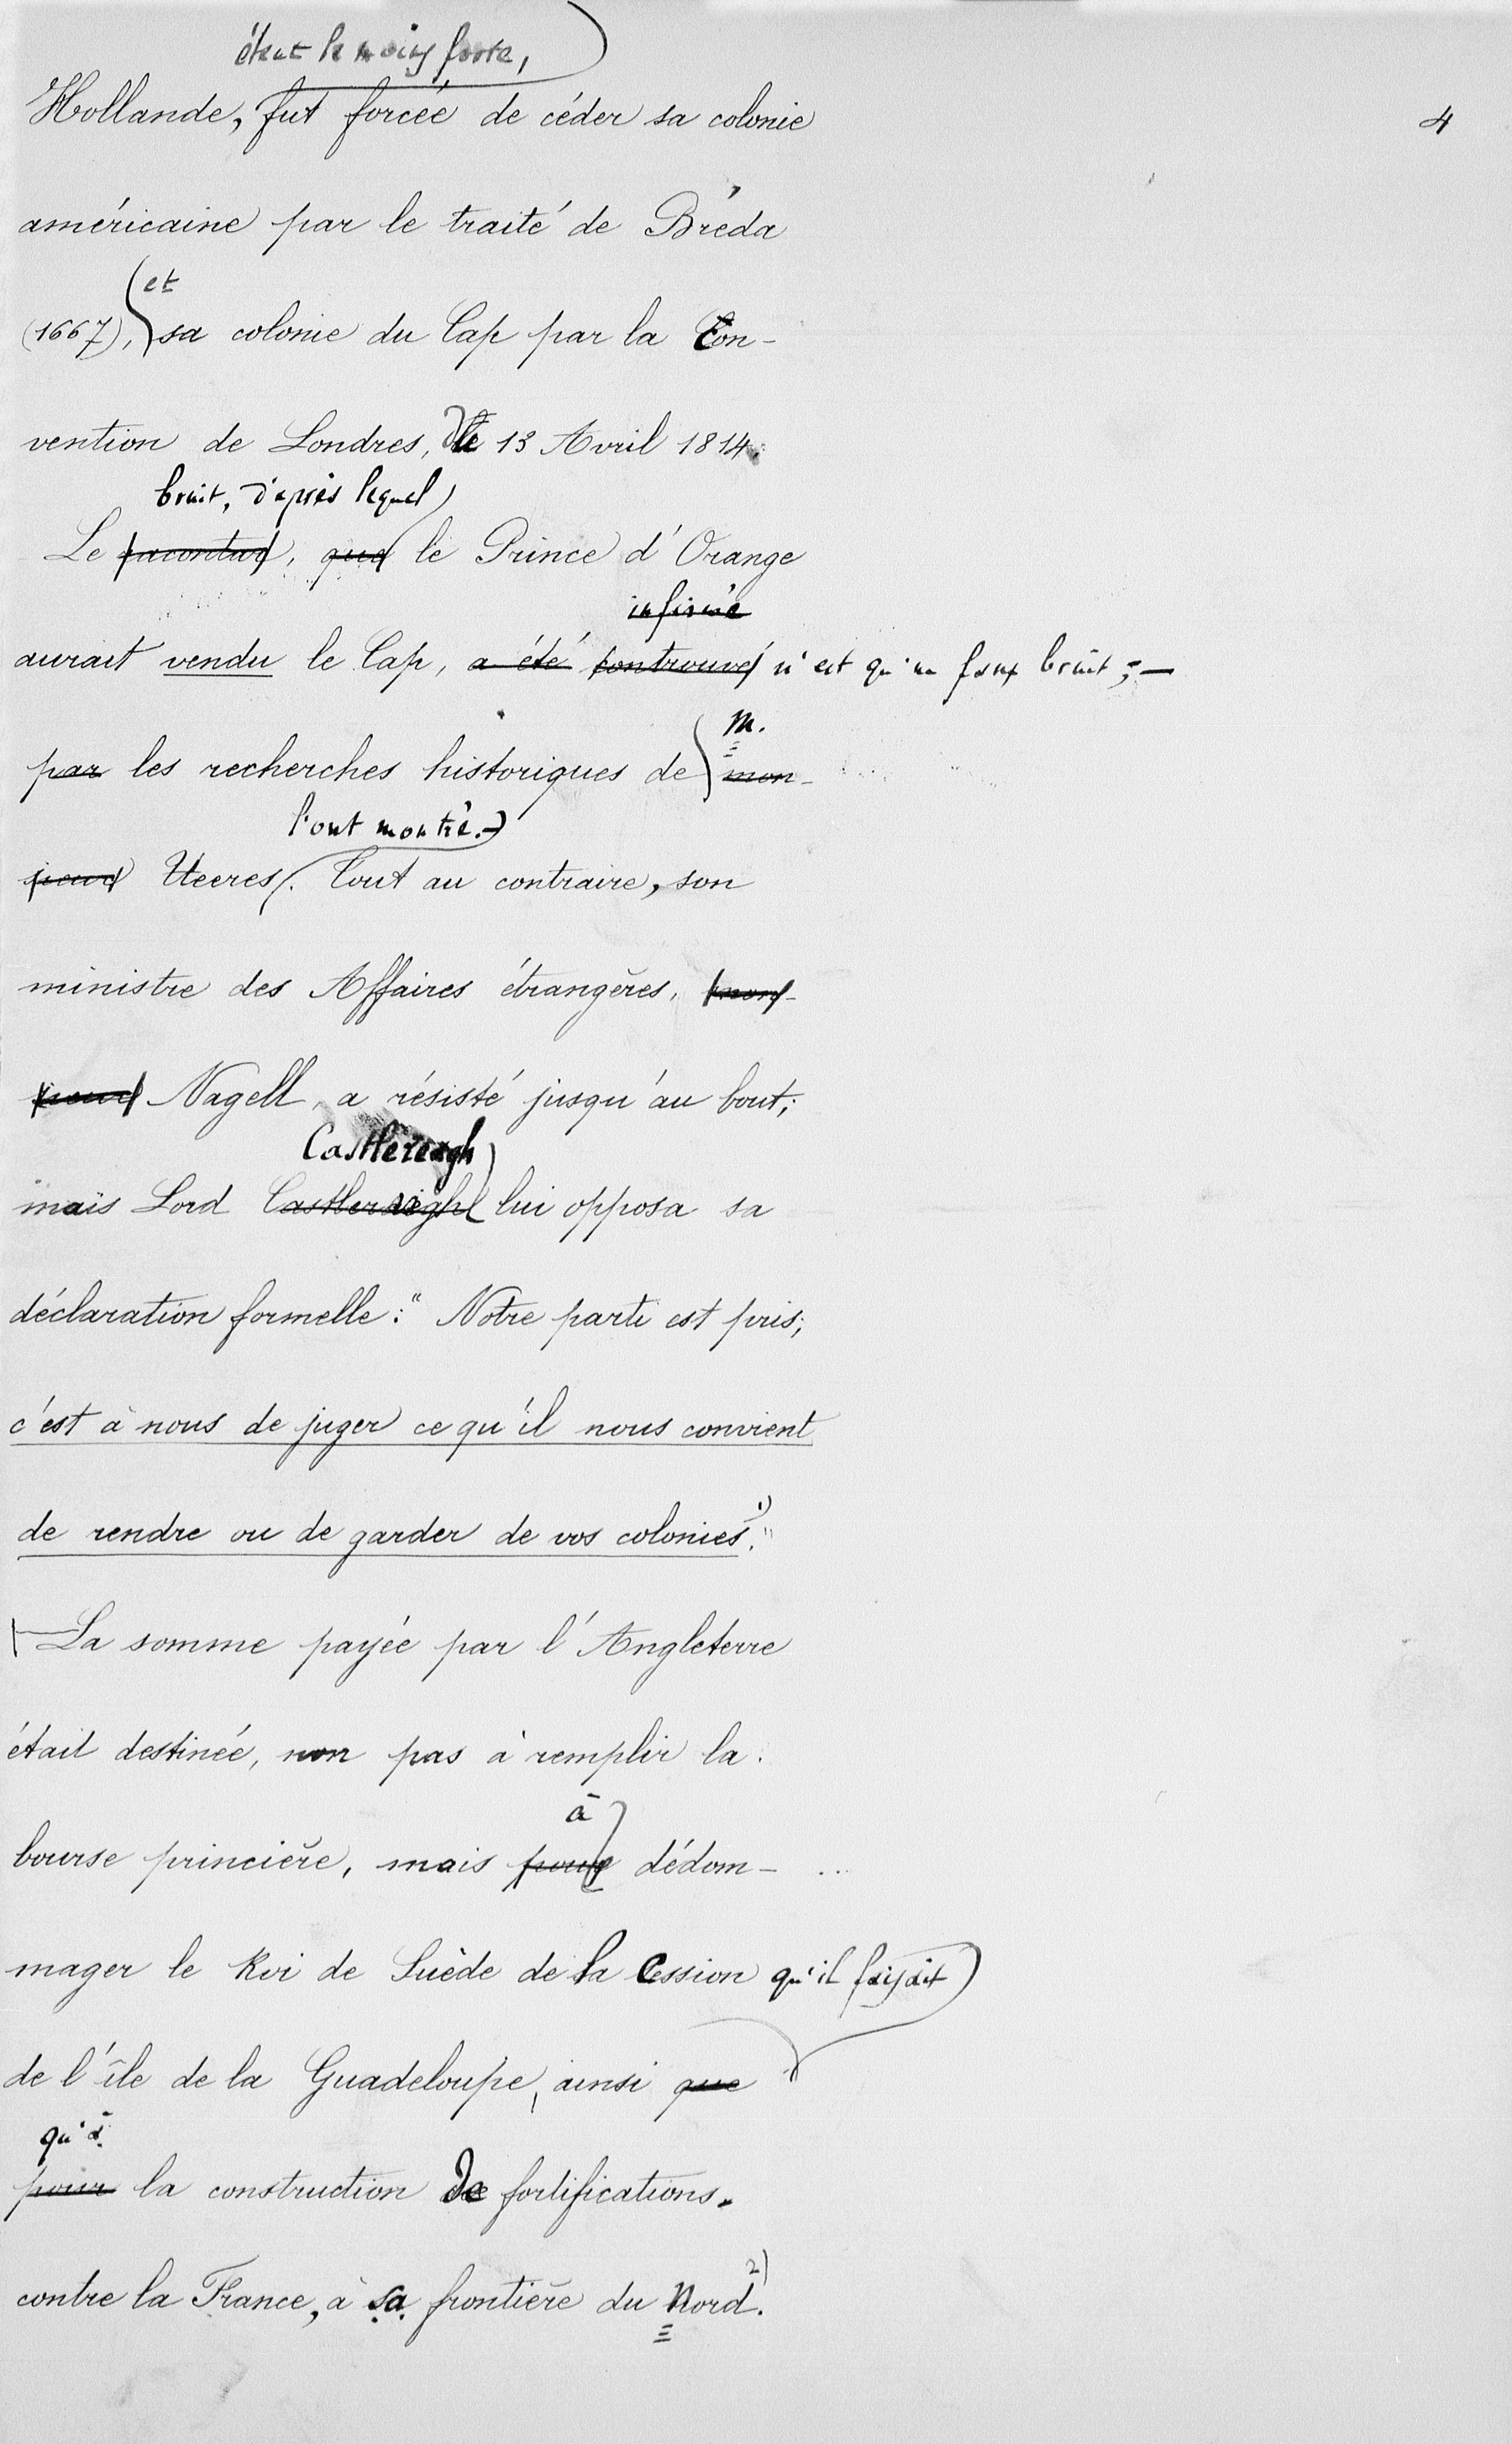 étant la moins forte,
Hollande, fut forcée de céder sa colonie
4
américaine par le traité de Bréda
et
(1667), sa colonie du Cap par la Con-
vention de Londres, de 13 Avril 1814.
bruit, d'après lequel
Le racontar, que le Prince d'Orange
infirmé
aurait vendu le Cap, a été controuvé n'est qu'un faux bruit; —
M.
par les recherches historiques de mon-
l'ont montré. —
sieur Heeres. Tout au contraire, son
ministre des Affaires étrangères, mon-
sieur Nagell, a résisté jusqu'au bout;
Castlereagh
mais Lord Castlereigh lui opposa sa
déclaration formelle: "Notre parti est pris;
c'est à nous de juger ce qu'il nous convient
de rendre ou de garder de vos colonies." 1)
La somme payée par l'Angleterre
était destinée, non pas à remplir la
à
bourse princière, mais pour dédom-
mager le Roi de Suède de la Cession qu'il faisait
de l'île de la Guadeloupe, ainsi que
qu'à
pour la construction de fortifications
contre la France, à sa frontière du Nord. 2)